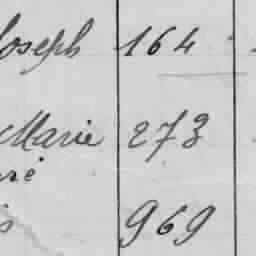 Joseph 164
Marie 273
969